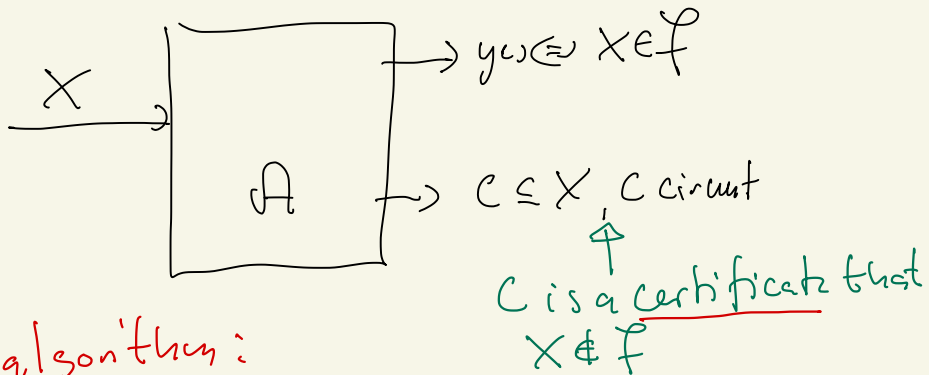 X
yes ⇔ X ∈ f
A
C ⊆ X, C circuit
C is a certificate that
X ∉ f
algorithm: